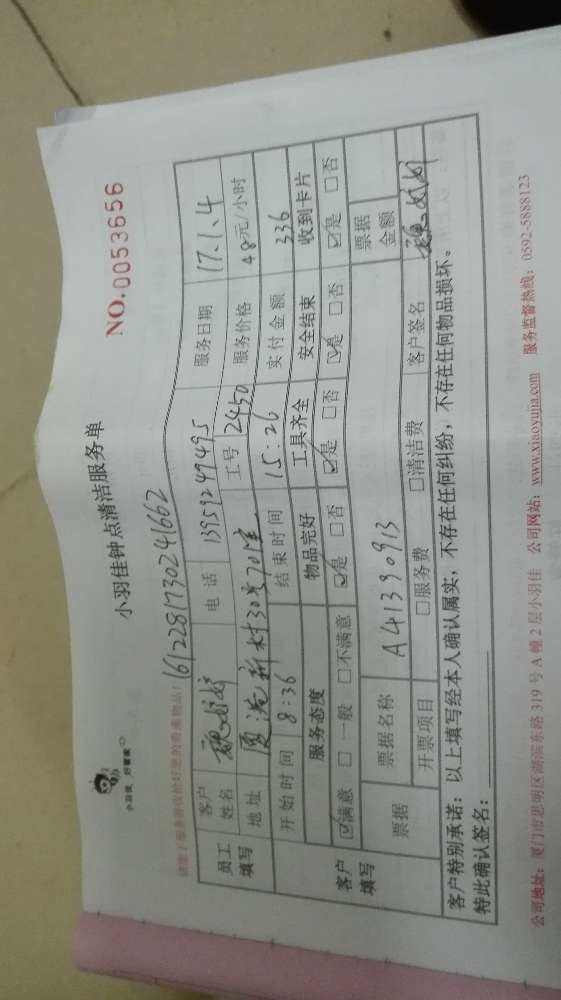 小羽佳 好管家
小羽佳钟点清洁服务单
NO.0053656
请您于服务前收拾好您的贵重物品!
1612281730241662
员工填写 客户姓名 电话 13959249495 服务日期 17.1.4
地址 工号 2450 服务价格 48元/小时
开始时间 8:36 结束时间 15:26 实付金额 336
客户填写 服务态度 物品完好 工具齐全 安全结束 收到卡片
☑满意 □一般 □不满意 ☑是 □否 ☑是 □否 ☑是 □否 ☑是 □否
票据 票据名称 A41390913 票据金额
开票项目 □服务费 □清洁费 客户签名
客户特别承诺：以上填写经本人确认属实，不存在任何纠纷，不存在任何物品损坏。
特此确认签名：
公司地址：厦门市思明区湖滨东路319号A幢2层小羽佳 公司网站：www.xiaoyujia.com 服务监督热线：0592-5888123